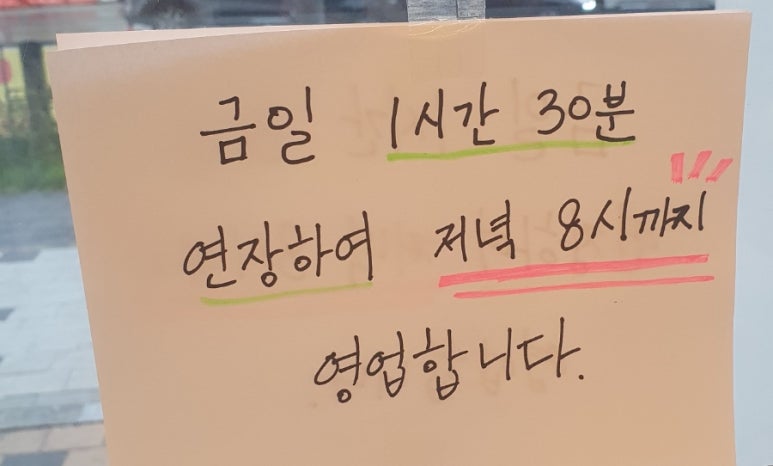 금일 1시간 30분
연장하여 저녁 8시까지
영업합니다.